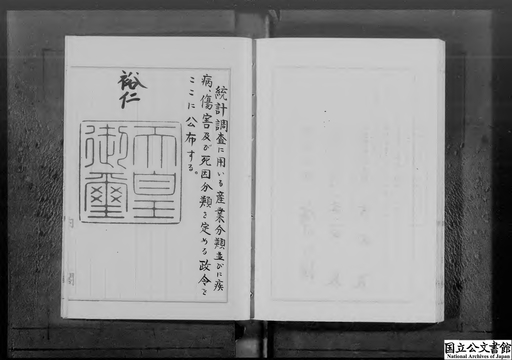 統計調査に用いる産業分類並びに疾
病、傷害及び死因分類を定める政令を
ここに公布する。
裕仁
天皇
御璽
国立公文書館
National Archives of Japan